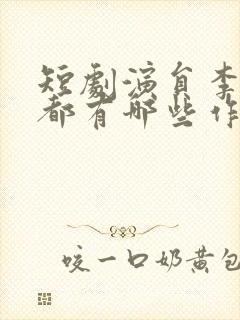 短劇演員李
都有哪些作
咬一口奶黄包